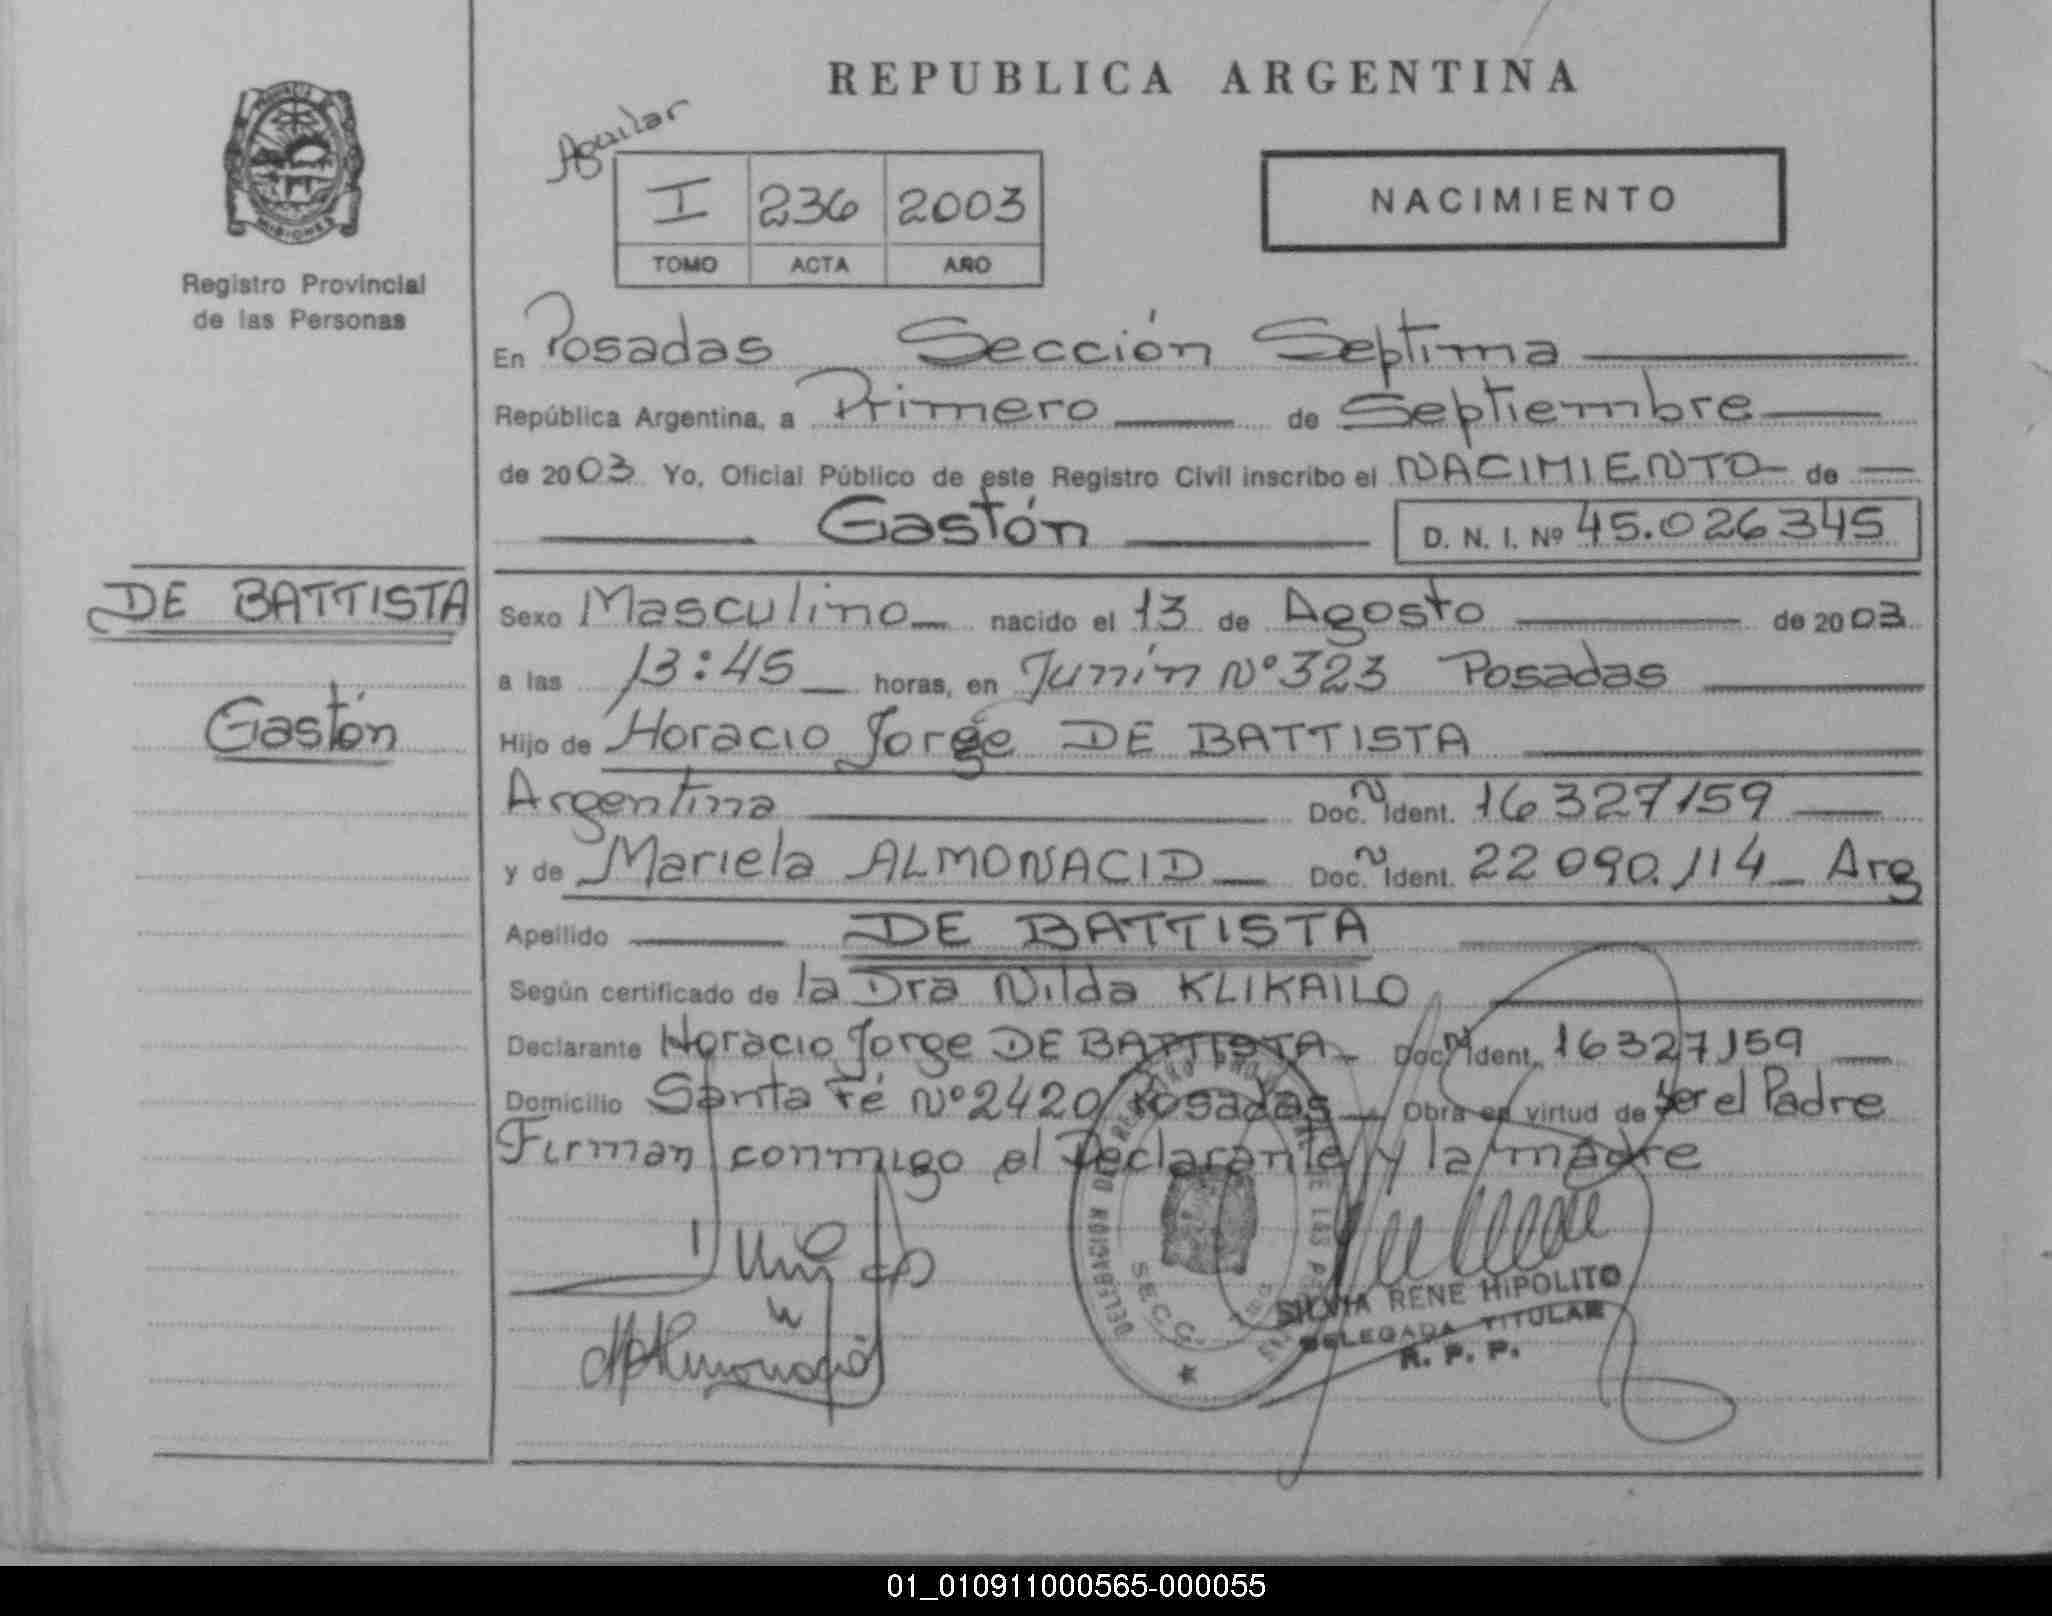 REPUBLICA ARGENTINA
Aguilar
I 236 2003
TOMO ACTA AÑO
NACIMIENTO
PROVINCIA DE
MISIONES
Registro Provincial
de las Personas
En Posadas Sección Septima
República Argentina, a Primero de Septiembre
de 2003 Yo, Oficial Público de este Registro Civil inscribo el NACIMIENTO de
Gastón D. N. I. Nº 45.026345
DE BATTISTA
Gastón
Sexo Masculino nacido el 13 de Agosto de 2003
a las 13:45 horas, en Junín Nº 323 Posadas
Hijo de Horacio Jorge DE BATTISTA
Argentina Doc. N Ident. 16327159
y de Mariela ALMONACID Doc. N Ident. 22090.114 Arg
Apellido DE BATTISTA
Según certificado de la Dra Nilda KLIKAILO
Declarante Horacio Jorge DE BATTISTA Doc. N Ident. 16327159
Domicilio Santa Fé Nº 2420 Posadas Obra en virtud de ser el Padre
Firman conmigo el Declarante y la madre
DELEGACION DE REGISTRO PROVINCIAL DE LAS
SECC.
SILVIA RENE HIPOLITO
DELEGADA TITULAR
R. P. P.
01_010911000565-000055